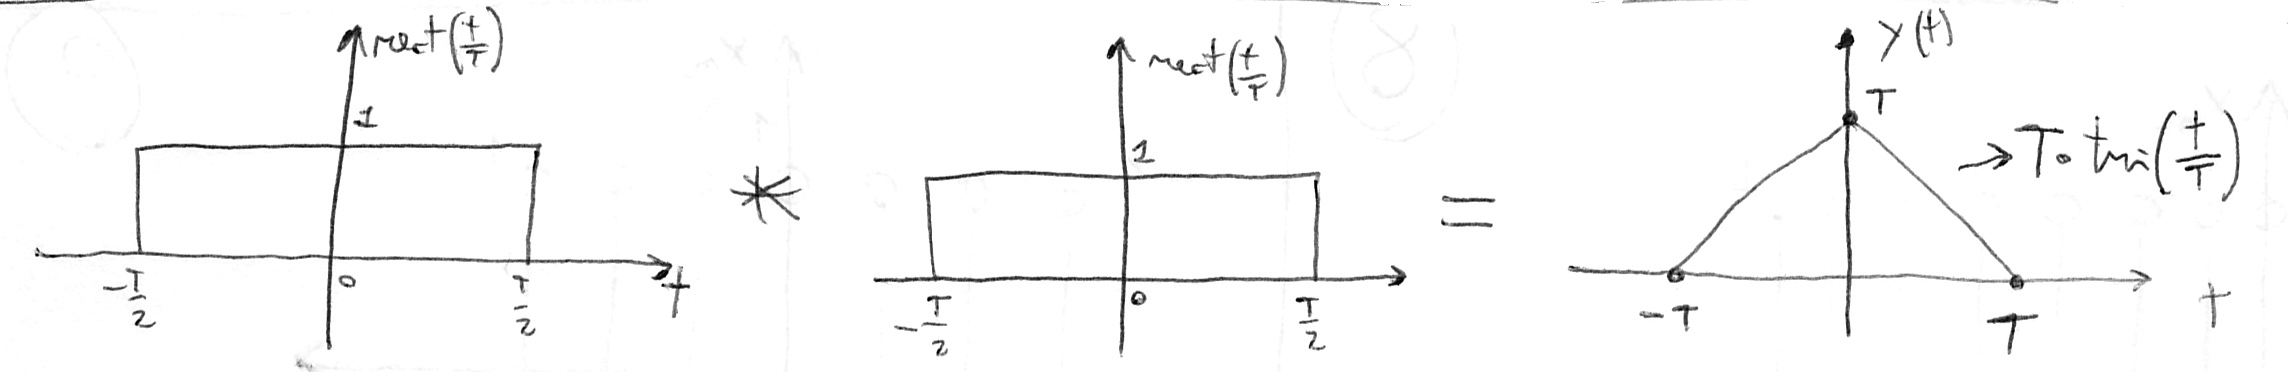 rect(t/T)
1
-T/2
0
T/2
t
*
rect(t/T)
1
-T/2
0
T/2
=
y(t)
T
→ T · tri(t/T)
-T
T
t